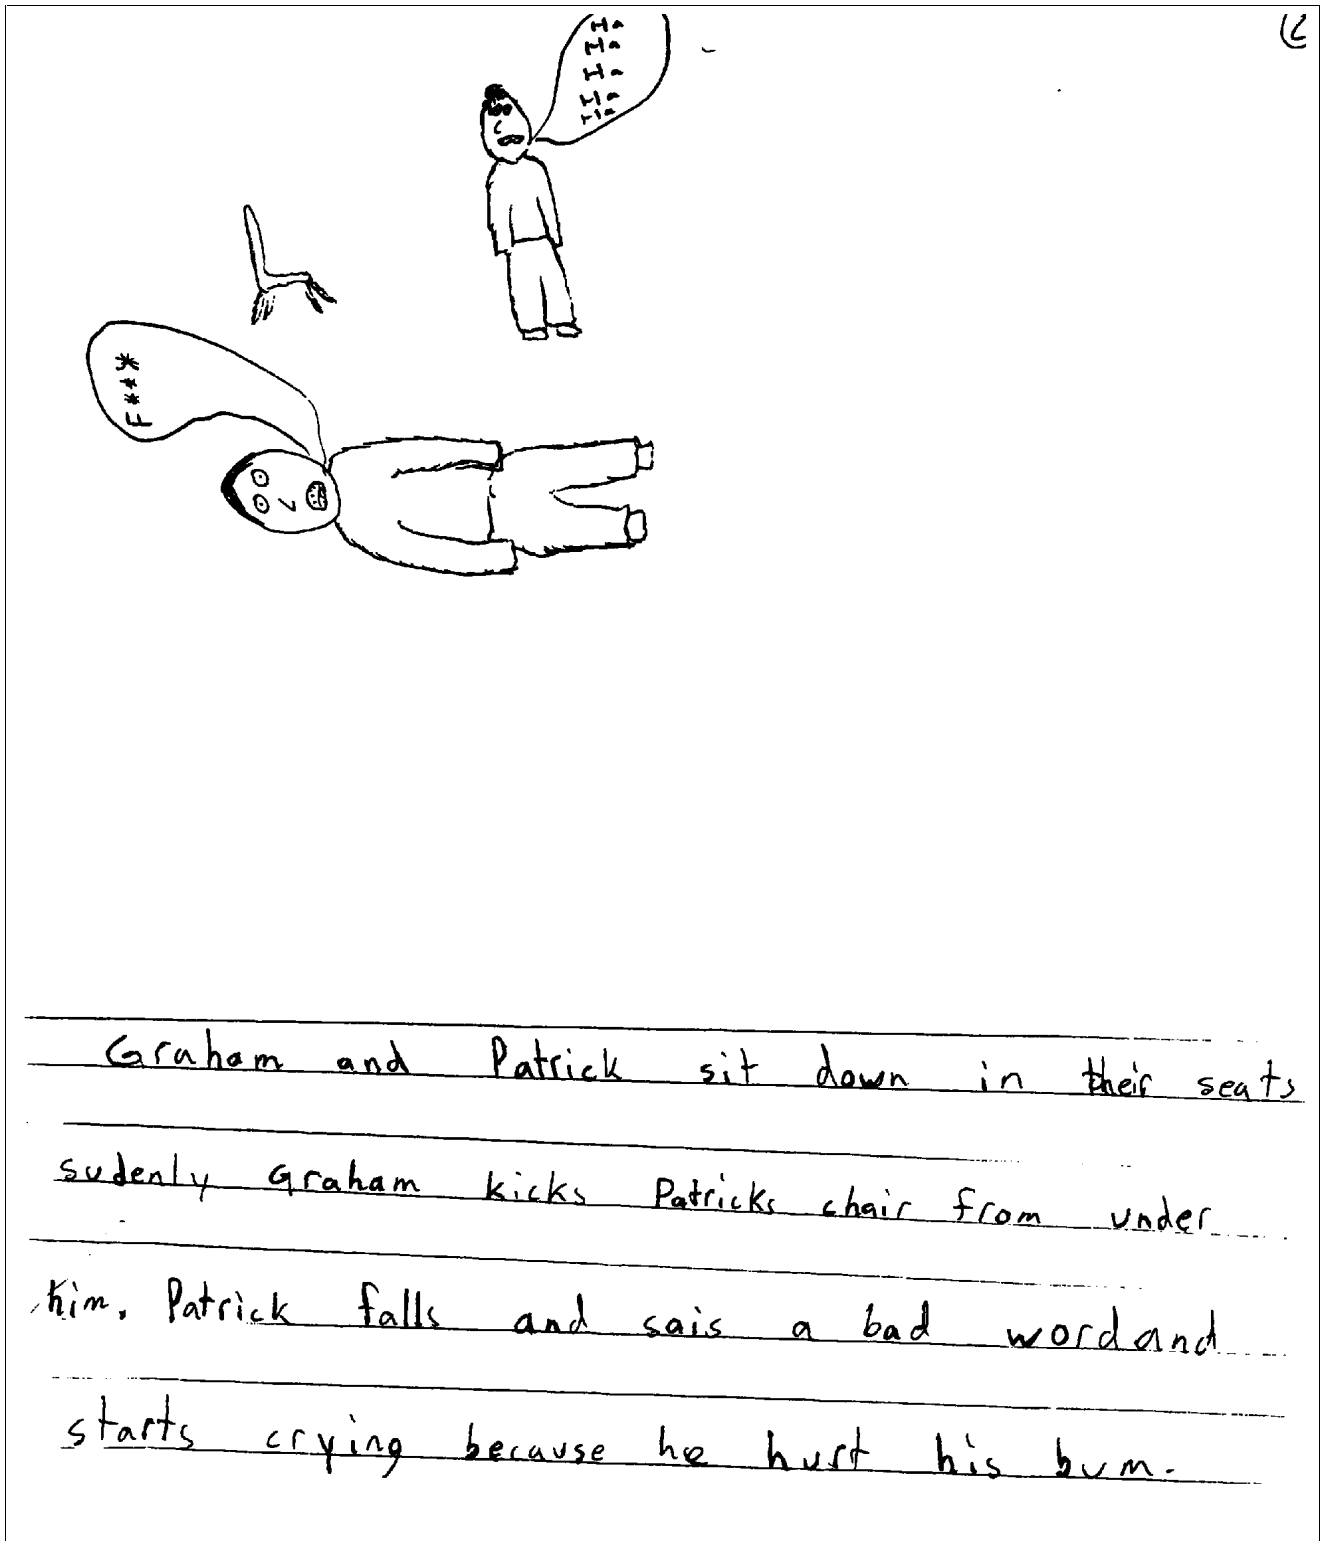 Ha
Ha
Ha
Ha
Ha
F***
Graham and Patrick sit down in their seats
sudenly Graham kicks Patricks chair from under
him. Patrick falls and sais a bad word and
starts crying because he hurt his bum.